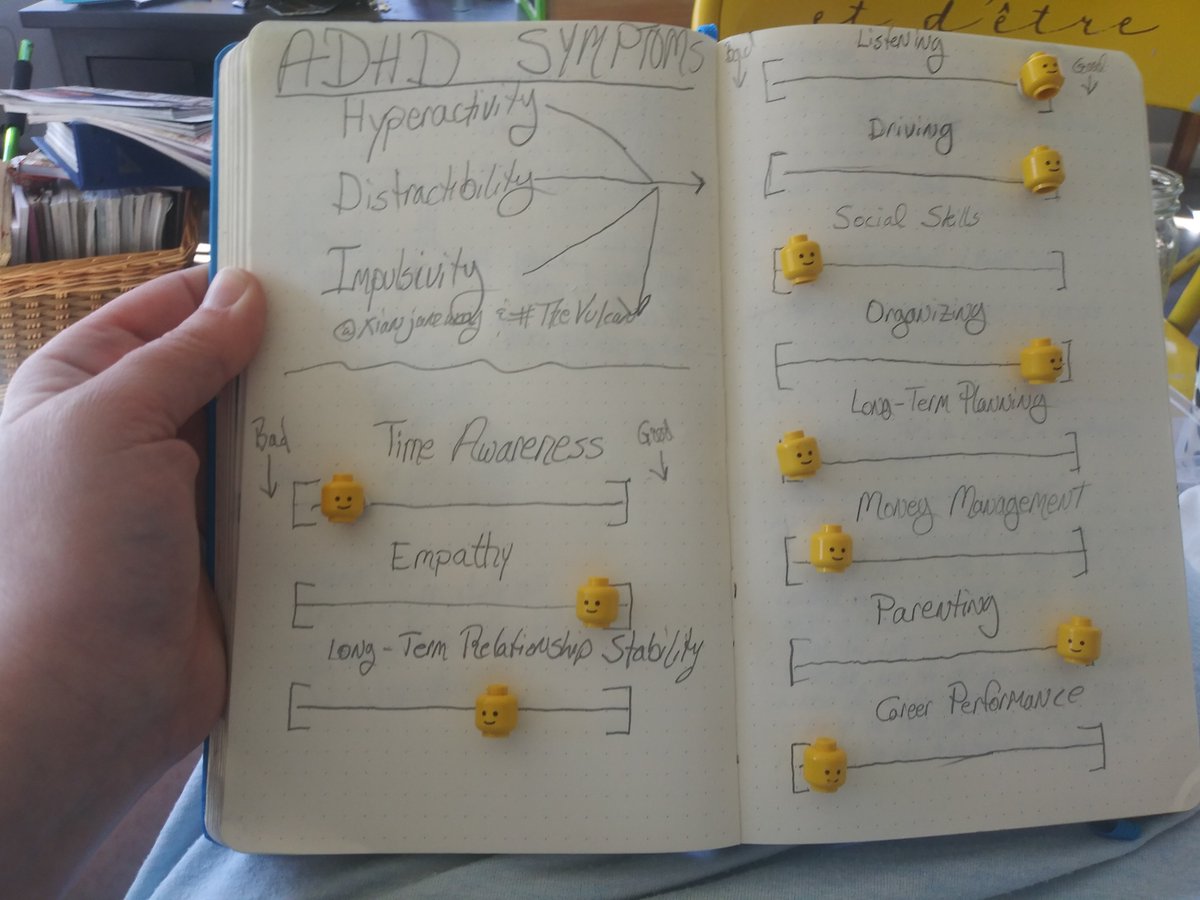 ADHD SYMPTOMS
Hyperactivity
Distractibility
Impulsivity
#TheVulcan
Bad
Time Awareness
Good
Empathy
Long-Term Relationship Stability
et d'être
Bad
Listening
Good
Driving
Social Skills
Organizing
Long-Term Planning
Money Management
Parenting
Career Performance